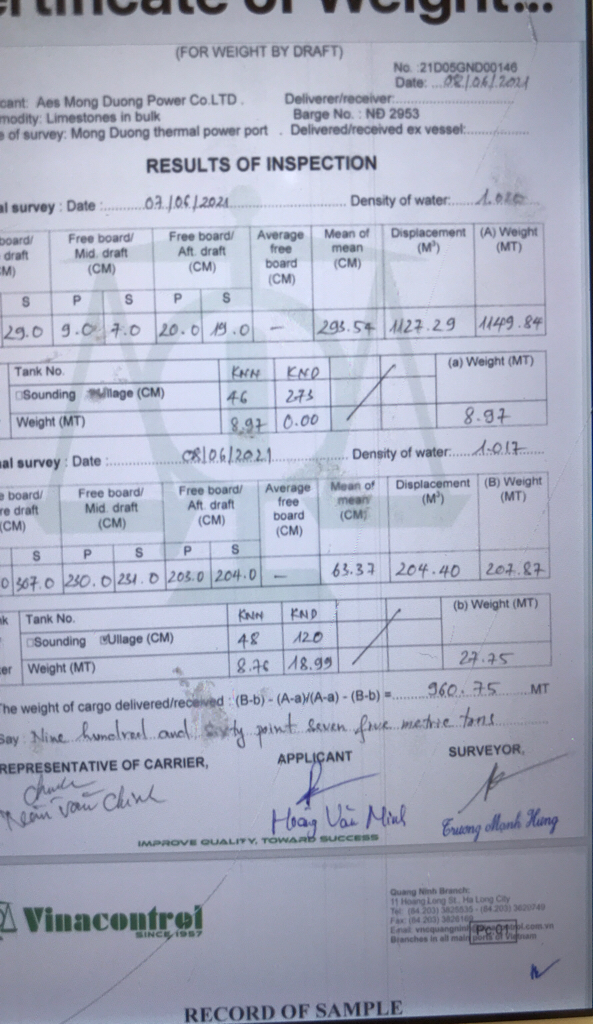 ertificate of Weight...
(FOR WEIGHT BY DRAFT)
No. :21D05GND00146
Date: ...08/06/2021
cant: Aes Mong Duong Power Co.LTD . Deliverer/receiver:
modity: Limestones in bulk Barge No. : NĐ 2953
e of survey: Mong Duong thermal power port . Delivered/received ex vessel:
RESULTS OF INSPECTION
al survey : Date : 07/06/2021 Density of water: 1.020
board/ draft CM) Free board/ Mid. draft (CM) Free board/ Aft. draft (CM) Average free board (CM) Mean of mean (CM) Displacement (M³) (A) Weight (MT)
S P S P S
29.0 9.0 7.0 20.0 19.0 – 293.54 1127.29 1149.84
Tank No. KNN KND (a) Weight (MT)
Sounding Ullage (CM) 46 273
Weight (MT) 8.97 0.00 8.97
nal survey : Date : 08/06/2021 Density of water: 1.017
e board/ re draft (CM) Free board/ Mid. draft (CM) Free board/ Aft. draft (CM) Average free board (CM) Mean of mean (CM) Displacement (M³) (B) Weight (MT)
S P S P S
0 307.0 230.0 231.0 203.0 204.0 – 63.37 204.40 207.87
nk Tank No. KNN KND (b) Weight (MT)
Sounding Ullage (CM) 48 120
ter Weight (MT) 8.76 18.99 27.75
The weight of cargo delivered/received : (B-b) - (A-a)/(A-a) - (B-b) = 960.75 MT
Say : Nine hundred and sixty point seven five metric tons
REPRESENTATIVE OF CARRIER, APPLICANT SURVEYOR,
Văn Chinh Hoàng Văn Minh Trương Mạnh Hùng
IMPROVE QUALITY, TOWARD SUCCESS
Vinacontrol
SINCE 1957
Quang Ninh Branch:
11 Hoang Long St., Ha Long City
Tel: (84.203) 3825535 - (84.203) 3820749
Fax: (84.203)
Email:
Branches in all main ports of Vietnam
Pc:01
RECORD OF SAMPLE